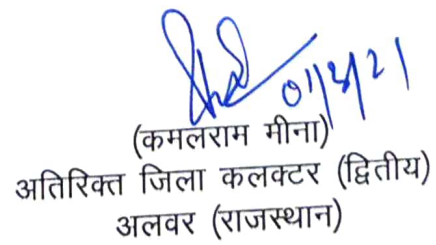 01/3/21
(कमलराम मीना)
अतिरिक्त जिला कलक्टर (द्वितीय)
अलवर (राजस्थान)